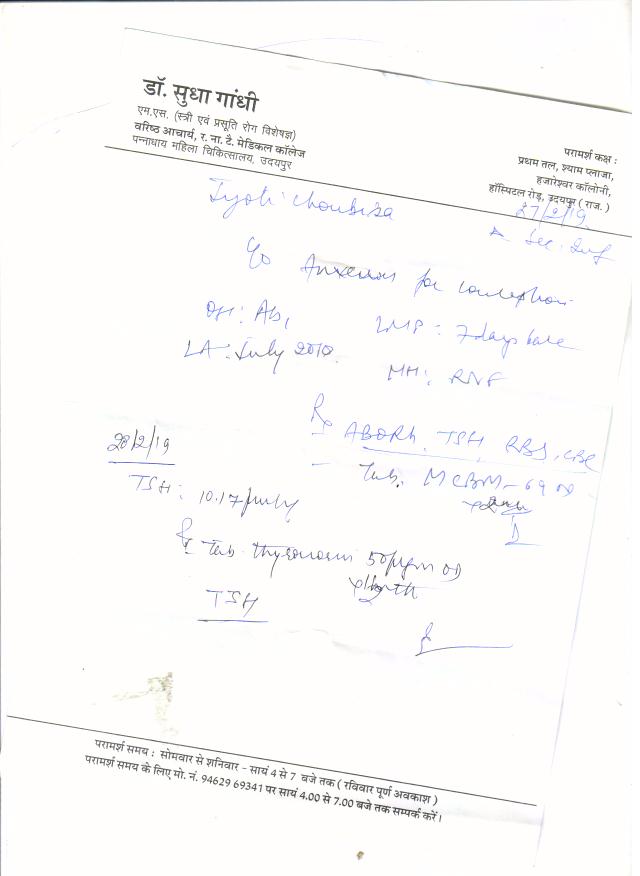 डॉ. सुधा गांधी
एम.एस. (स्त्री एवं प्रसूति रोग विशेषज्ञ)
वरिष्ठ आचार्य, र. ना. टै. मेडिकल कॉलेज
पन्नाधाय महिला चिकित्सालय, उदयपुर
परामर्श कक्ष :
प्रथम तल, श्याम प्लाजा,
हजारेश्वर कॉलोनी,
हॉस्पिटल रोड़, उदयपुर ( राज. )
27/2/19
Jyoti Choubisa
Sec. Inf
c/o Anxious for conception
OH: Ab1
LMP : 7 days back
LA: July 2018
MH: RNF
Rx ABORh, TSH, RBS, CBC
Tab. MCBM-69 OD
28/2/19
TSH: 10.17
Tab Thyronorm 50 µgm OD
TSH
परामर्श समय : सोमवार से शनिवार - सायं 4 से 7 बजे तक ( रविवार पूर्ण अवकाश )
परामर्श समय के लिए मो. नं. 94629 69341 पर सायं 4.00 से 7.00 बजे तक सम्पर्क करें।